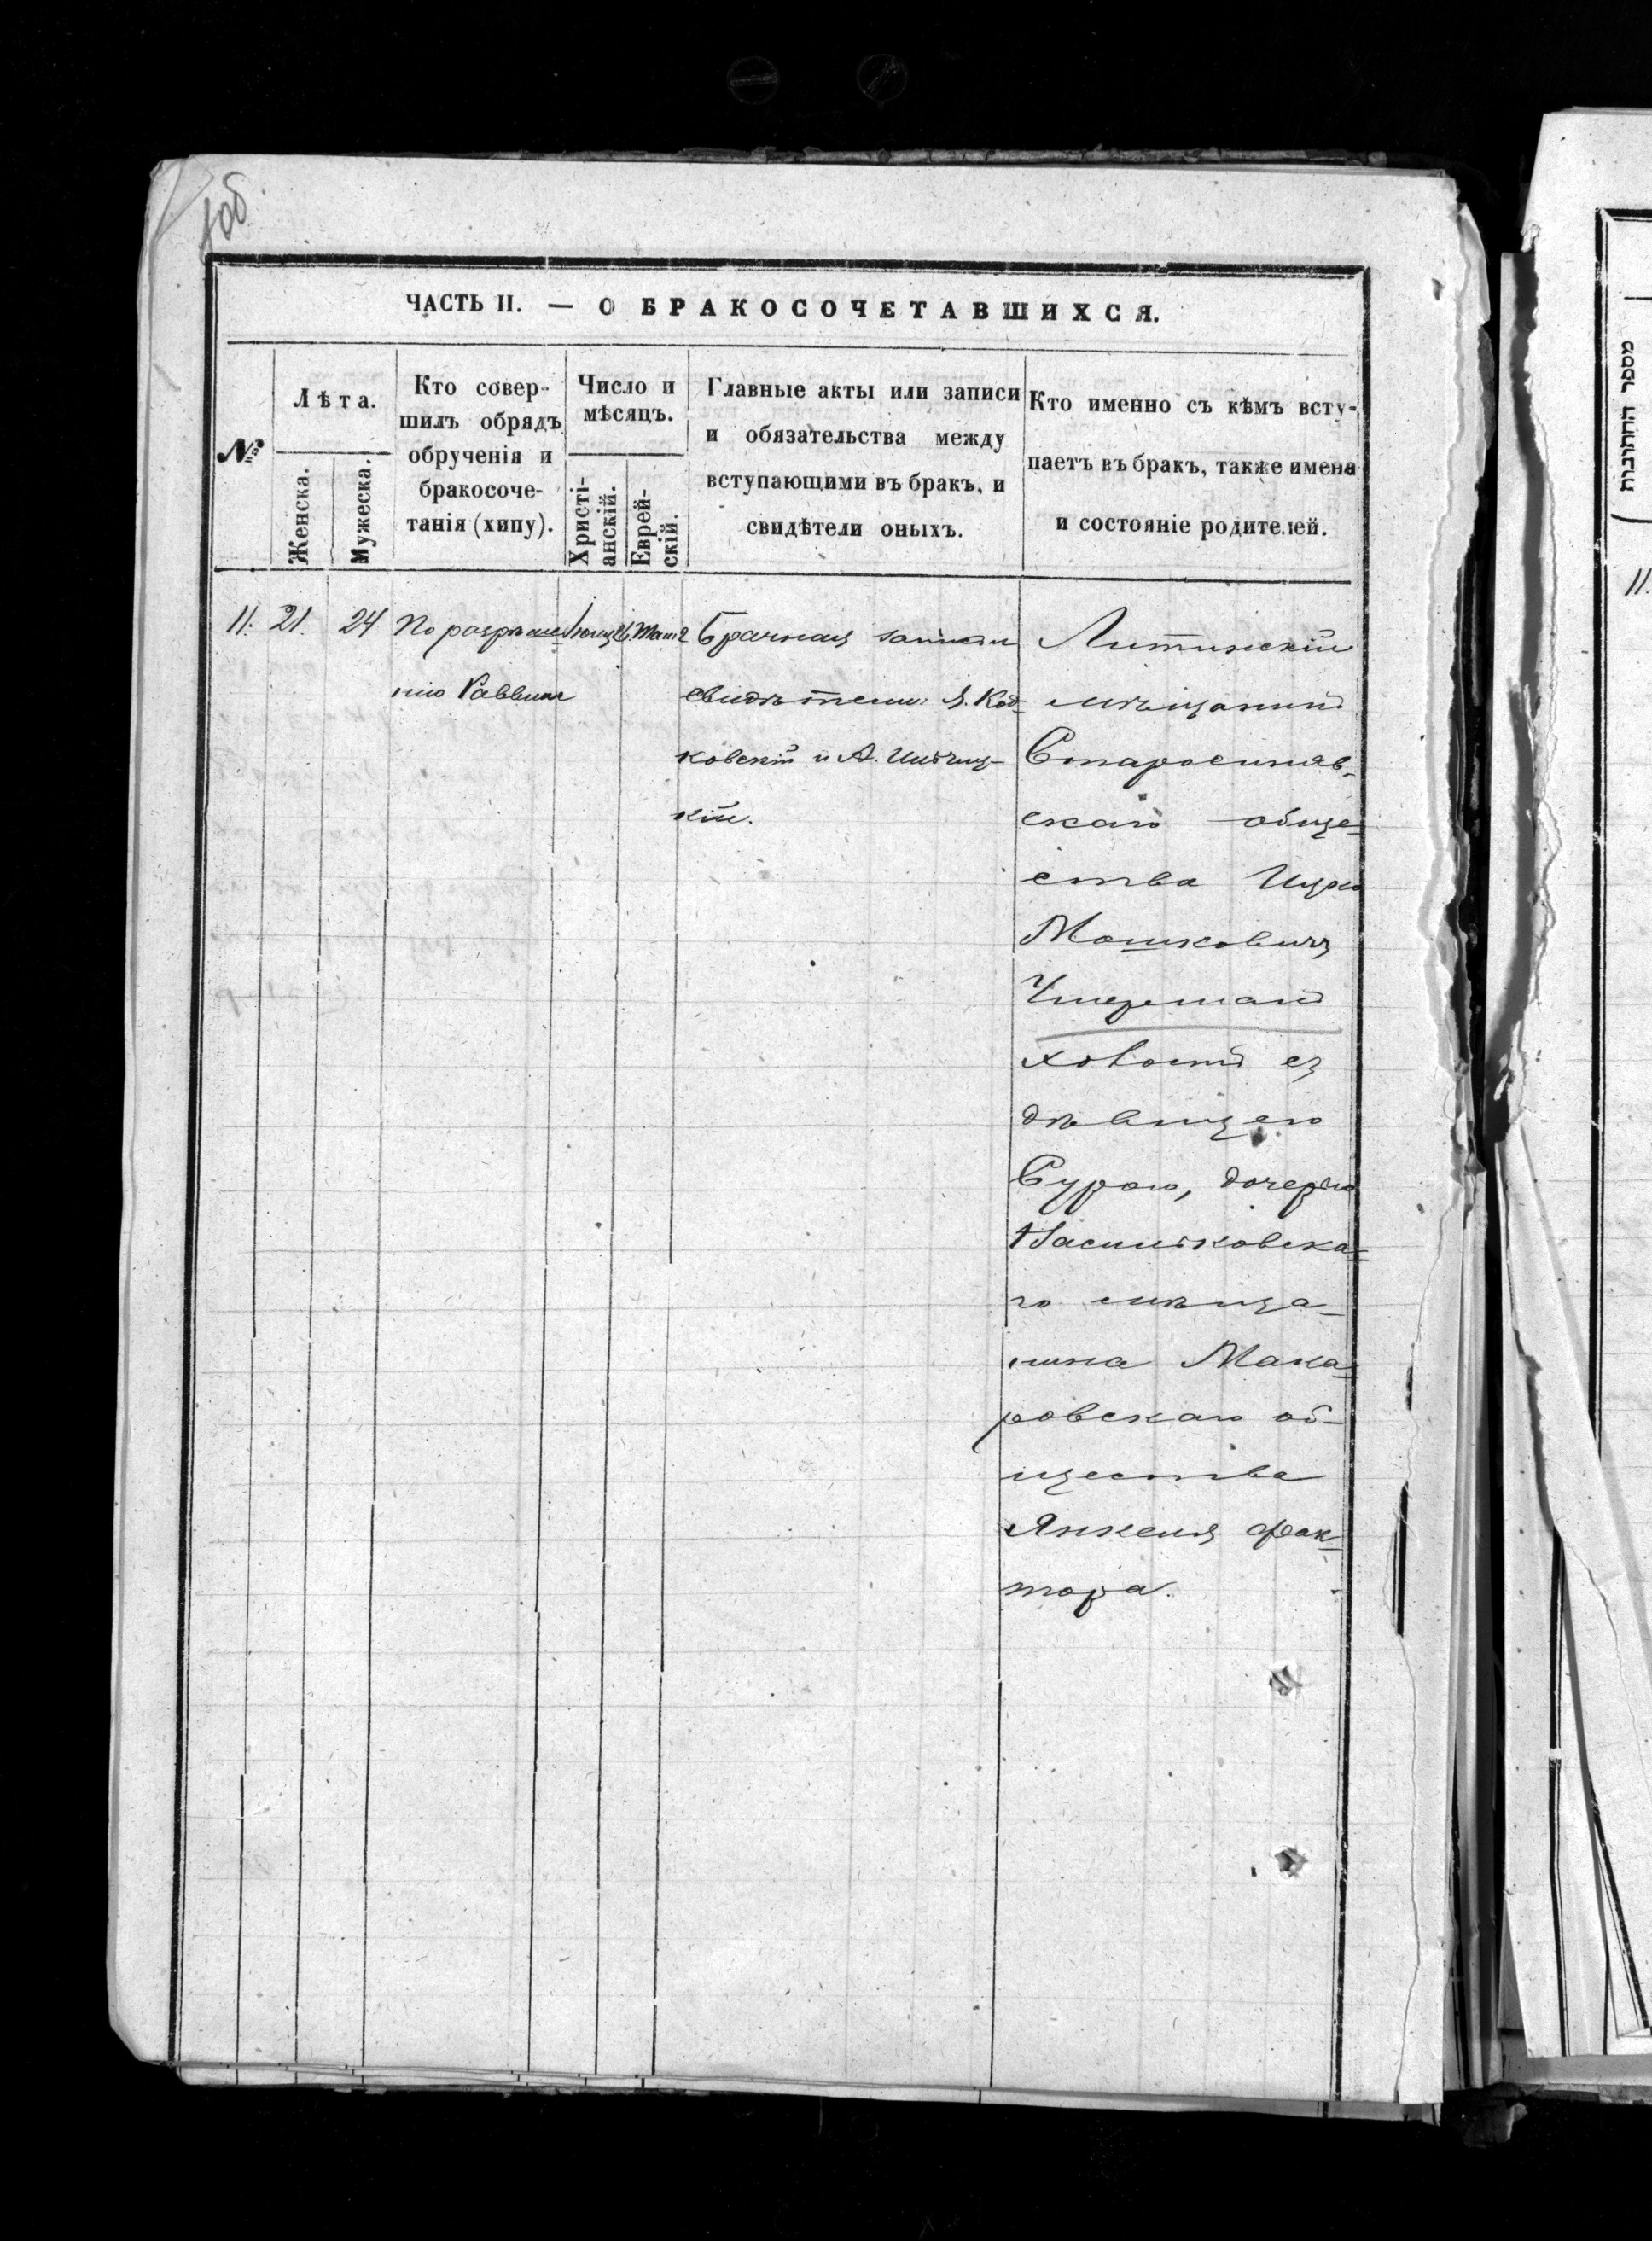 ЧАСТЬ II. — О БРАКОСОЧЕТАВШИХСЯ.
№
Лѣта.
Женска.
Мужеска.
Кто совер-
шилъ обрядъ
обрученія и
бракосоче-
танія (хипу).
Число и
мѣсяцъ.
Христі-
анскій.
Еврей-
скій.
Главные акты или записи
и обязательства между
вступающими въ бракъ, и
свидѣтели оныхъ.
Кто именно съ кѣмъ всту-
паетъ въ бракъ, также имена
и состояніе родителей.
11.
21.
24
По разрѣше-
нію Раввина
Брачная запись
свидѣтели:
ковскій и А.
кій.
Литинскій
мѣщанинъ
Старосиняв-
скаго обще-
ства Ицко
Мошковичъ
холостъ съ
дѣвицею
Сурою, дочерью
Васильковска-
го мѣща-
нина Мака-
ровскаго об-
щества
Янкеля Фак-
тора.
מספר החתונות
11.